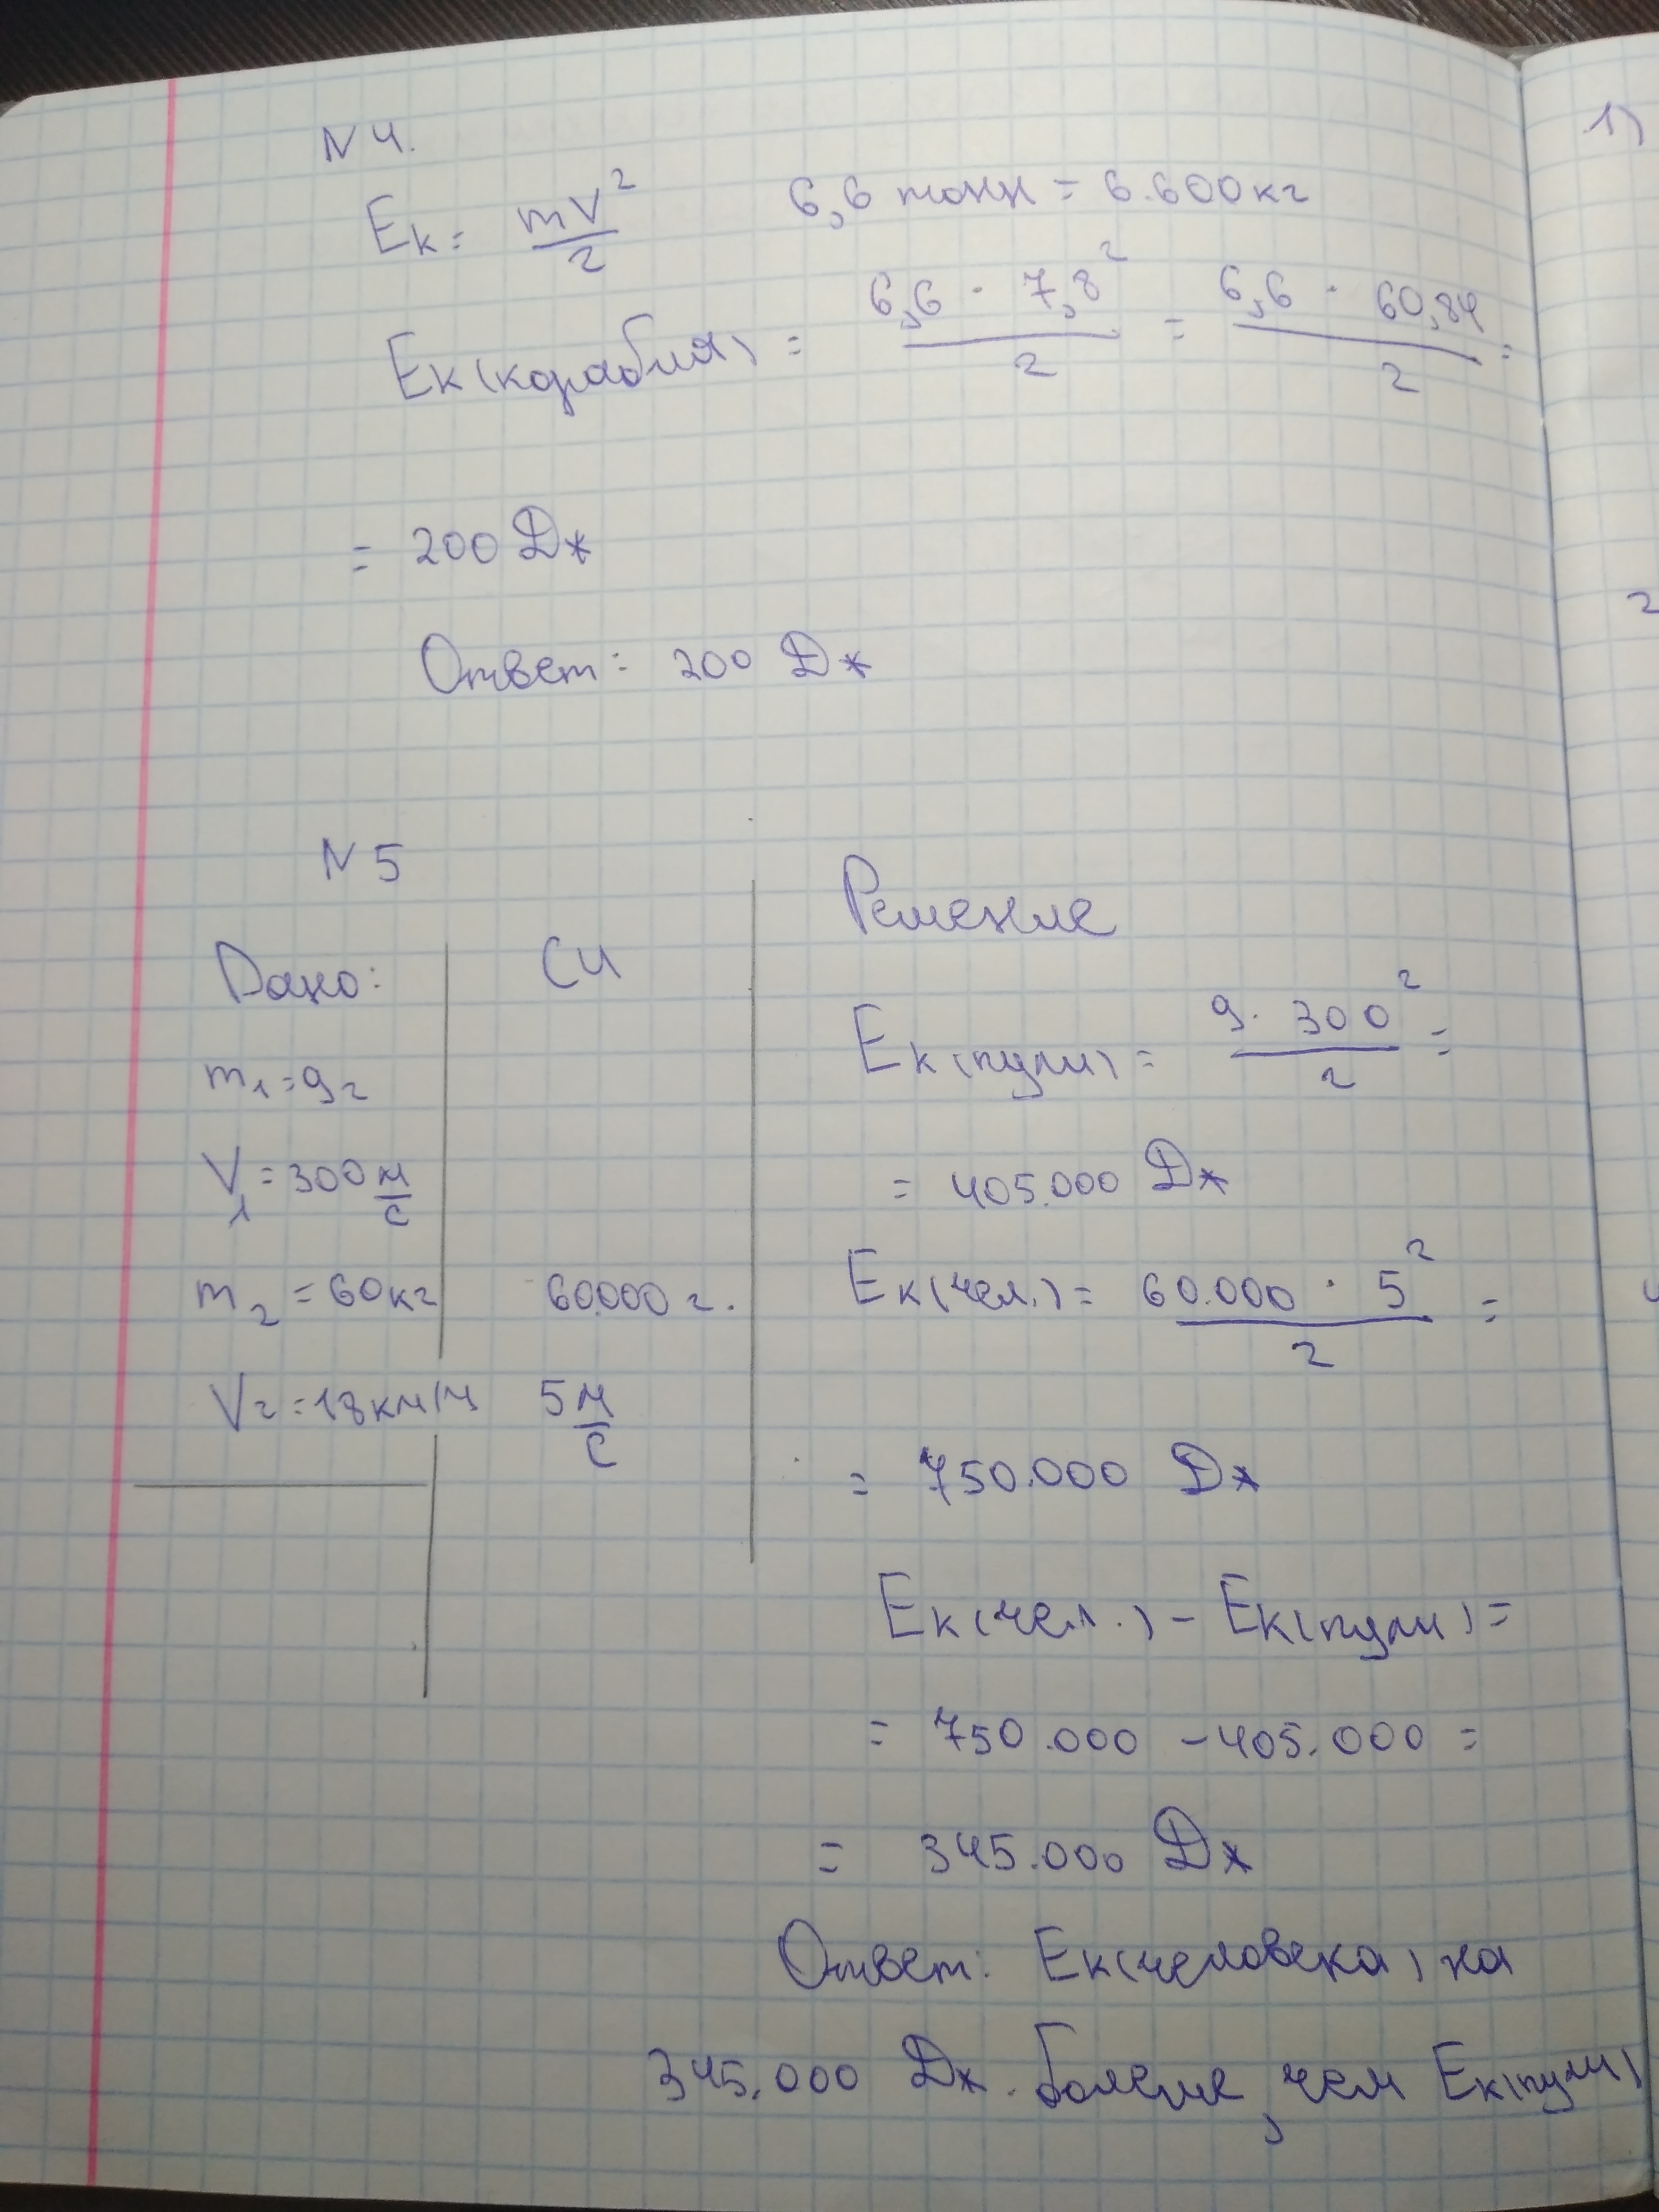 N 4.
Eк = mV²/2    6,6 тонн = 6.600 кг
Eк(корабля) = 6,6 · 7,8²/2 = 6,6 · 60,84/2 =
= 200 Дж
Ответ: 200 Дж
N 5
Дано:
m₁ = 9г
V₁ = 300 м/с
m₂ = 60кг
V₂ = 18км/ч
СИ
60.000 г.
5 м/с
Решение
Eк(пули) = 9 · 300²/2 =
= 405.000 Дж
Eк(чел.) = 60.000 · 5²/2 =
= 750.000 Дж
Eк(чел.) - Eк(пули) =
= 750.000 - 405.000 =
= 345.000 Дж
Ответ: Eк(человека) на
345.000 Дж. больше, чем Eк(пули)
1)
2